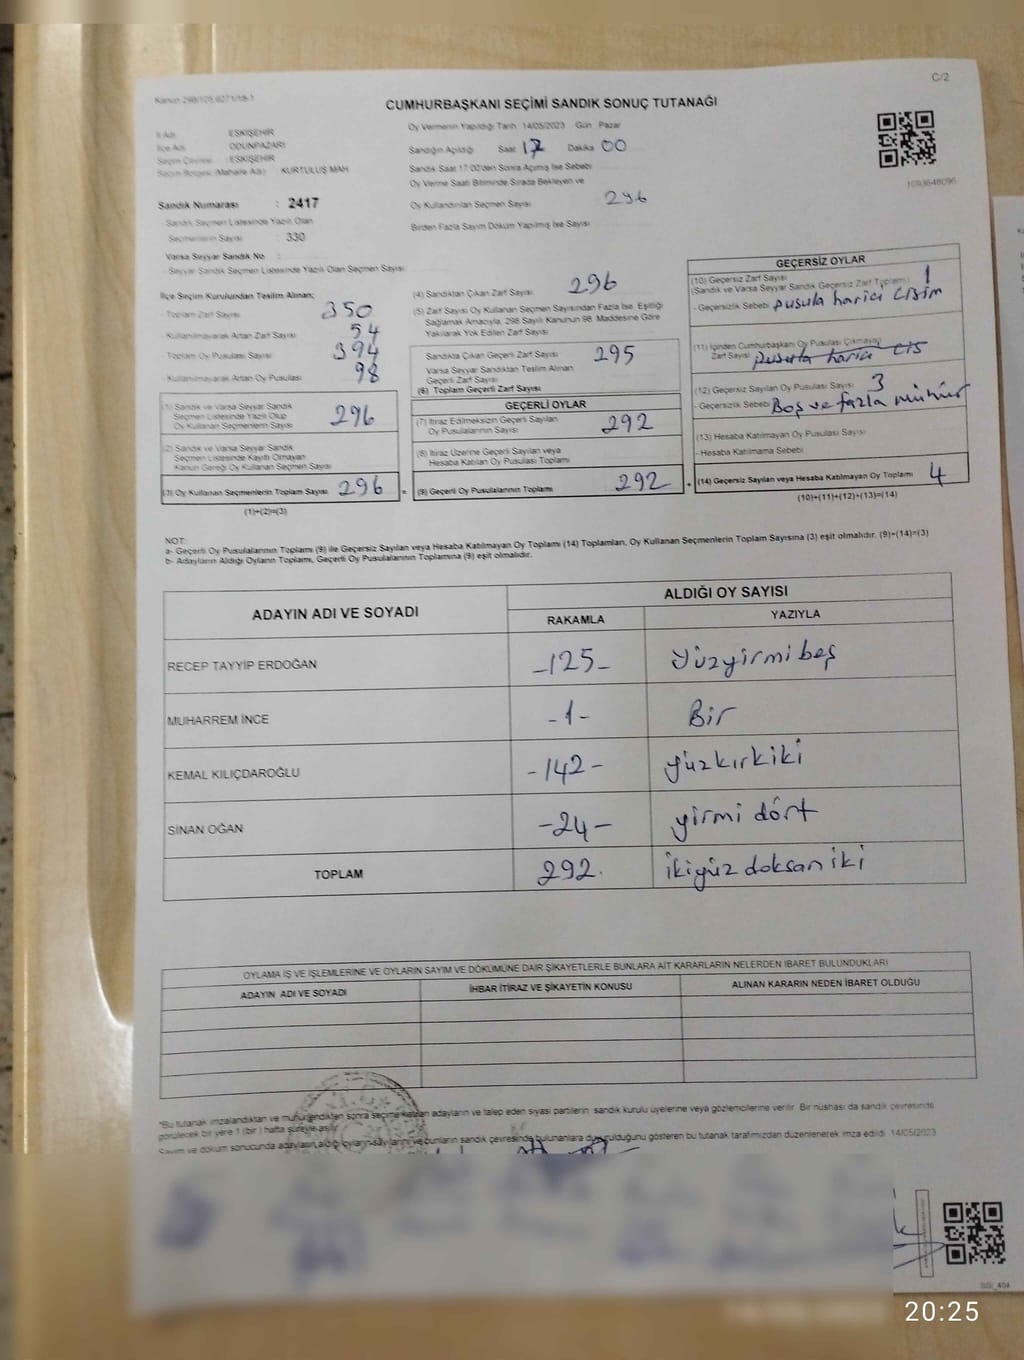 C/2
Kanun 298/105,6271/18-1
CUMHURBAŞKANI SEÇİMİ SANDIK SONUÇ TUTANAĞI
İl Adı : ESKİŞEHİR
İlçe Adı : ODUNPAZARI
Seçim Çevresi : ESKİŞEHİR
Seçim Bölgesi (Mahalle Adı) : KURTULUŞ MAH
Sandık Numarası : 2417
Sandık Seçmen Listesinde Yazılı Olan
Seçmenlerin Sayısı : 330
Varsa Seyyar Sandık No :
- Seyyar Sandık Seçmen Listesinde Yazılı Olan Seçmen Sayısı :
Oy Vermenin Yapıldığı Tarih 14/05/2023 Gün Pazar
Sandığın Açıldığı Saat 17 Dakika 00
Sandık Saat 17:00'den Sonra Açılmış İse Sebebi
Oy Verme Saati Bitiminde Sırada Bekleyen ve
Oy Kullandırılan Seçmen Sayısı 296
Birden Fazla Sayım Döküm Yapılmış İse Sayısı
İlçe Seçim Kurulundan Teslim Alınan;
- Toplam Zarf Sayısı 350
- Kullanılmayarak Artan Zarf Sayısı 54
Toplam Oy Pusulası Sayısı 394
- Kullanılmayarak Artan Oy Pusulası 98
(1) Sandık ve Varsa Seyyar Sandık
Seçmen Listesinde Yazılı Olup
Oy Kullanan Seçmenlerin Sayısı 296
(2) Sandık ve Varsa Seyyar Sandık
Seçmen Listesinde Kayıtlı Olmayan
Kanun Gereği Oy Kullanan Seçmen Sayısı
(3) Oy Kullanan Seçmenlerin Toplam Sayısı 296 =
(1)+(2)=(3)
(4) Sandıktan Çıkan Zarf Sayısı 296
(5) Zarf Sayısı Oy Kullanan Seçmen Sayısından Fazla İse, Eşitliği
Sağlamak Amacıyla, 298 Sayılı Kanunun 98. Maddesine Göre
Yakılarak Yok Edilen Zarf Sayısı
Sandıkta Çıkan Geçerli Zarf Sayısı 295
Varsa Seyyar Sandıktan Teslim Alınan
Geçerli Zarf Sayısı
(6) Toplam Geçerli Zarf Sayısı
GEÇERLİ OYLAR
(7) İtiraz Edilmeksizin Geçerli Sayılan
Oy Pusulalarının Sayısı 292
(8) İtiraz Üzerine Geçerli Sayılan veya
Hesaba Katılan Oy Pusulası Toplamı
(9) Geçerli Oy Pusulalarının Toplamı 292 +
GEÇERSİZ OYLAR
(10) Geçersiz Zarf Sayısı
(Sandık ve Varsa Seyyar Sandık Geçersiz Zarf Toplamı) 1
- Geçersizlik Sebebi pusula harici cisim
(11) İçinden Cumhurbaşkanı Oy Pusulası Çıkmayan
Zarf Sayısı pusula harici cis
(12) Geçersiz Sayılan Oy Pusulası Sayısı 3
- Geçersizlik Sebebi Boş ve fazla mühür
(13) Hesaba Katılmayan Oy Pusulası Sayısı
- Hesaba Katılmama Sebebi
(14) Geçersiz Sayılan veya Hesaba Katılmayan Oy Toplamı 4
(10)+(11)+(12)+(13)=(14)
NOT:
a- Geçerli Oy Pusulalarının Toplamı (9) ile Geçersiz Sayılan veya Hesaba Katılmayan Oy Toplamı (14) Toplamları, Oy Kullanan Seçmenlerin Toplam Sayısına (3) eşit olmalıdır. (9)+(14)=(3)
b- Adayların Aldığı Oyların Toplamı, Geçerli Oy Pusulalarının Toplamına (9) eşit olmalıdır.
ADAYIN ADI VE SOYADI ALDIĞI OY SAYISI
RAKAMLA YAZIYLA
RECEP TAYYİP ERDOĞAN -125- Yüzyirmibeş
MUHARREM İNCE -1- Bir
KEMAL KILIÇDAROĞLU -142- yüzkırkiki
SİNAN OĞAN -24- yirmi dört
TOPLAM 292. ikiyüz doksan iki
OYLAMA İŞ VE İŞLEMLERİNE VE OYLARIN SAYIM VE DÖKÜMÜNE DAİR ŞİKAYETLERLE BUNLARA AİT KARARLARIN NELERDEN İBARET BULUNDUKLARI
ADAYIN ADI VE SOYADI İHBAR İTİRAZ VE ŞİKAYETİN KONUSU ALINAN KARARIN NEDEN İBARET OLDUĞU
*Bu tutanak imzalandıktan ve mühürlendikten sonra seçime katılan adayların ve talep eden siyasi partilerin sandık kurulu üyelerine veya gözlemcilerine verilir. Bir nüshası da sandık çevresinde
görülecek bir yere 1 (bir) hafta süreyle asılır.
Sayım ve döküm sonucunda adayların aldığı oyların sayılarını ve bunların sandık çevresinde bulunanlara duyurulduğunu gösteren bu tutanak tarafımızdan düzenlenerek imza edildi. 14/05/2023
20:25